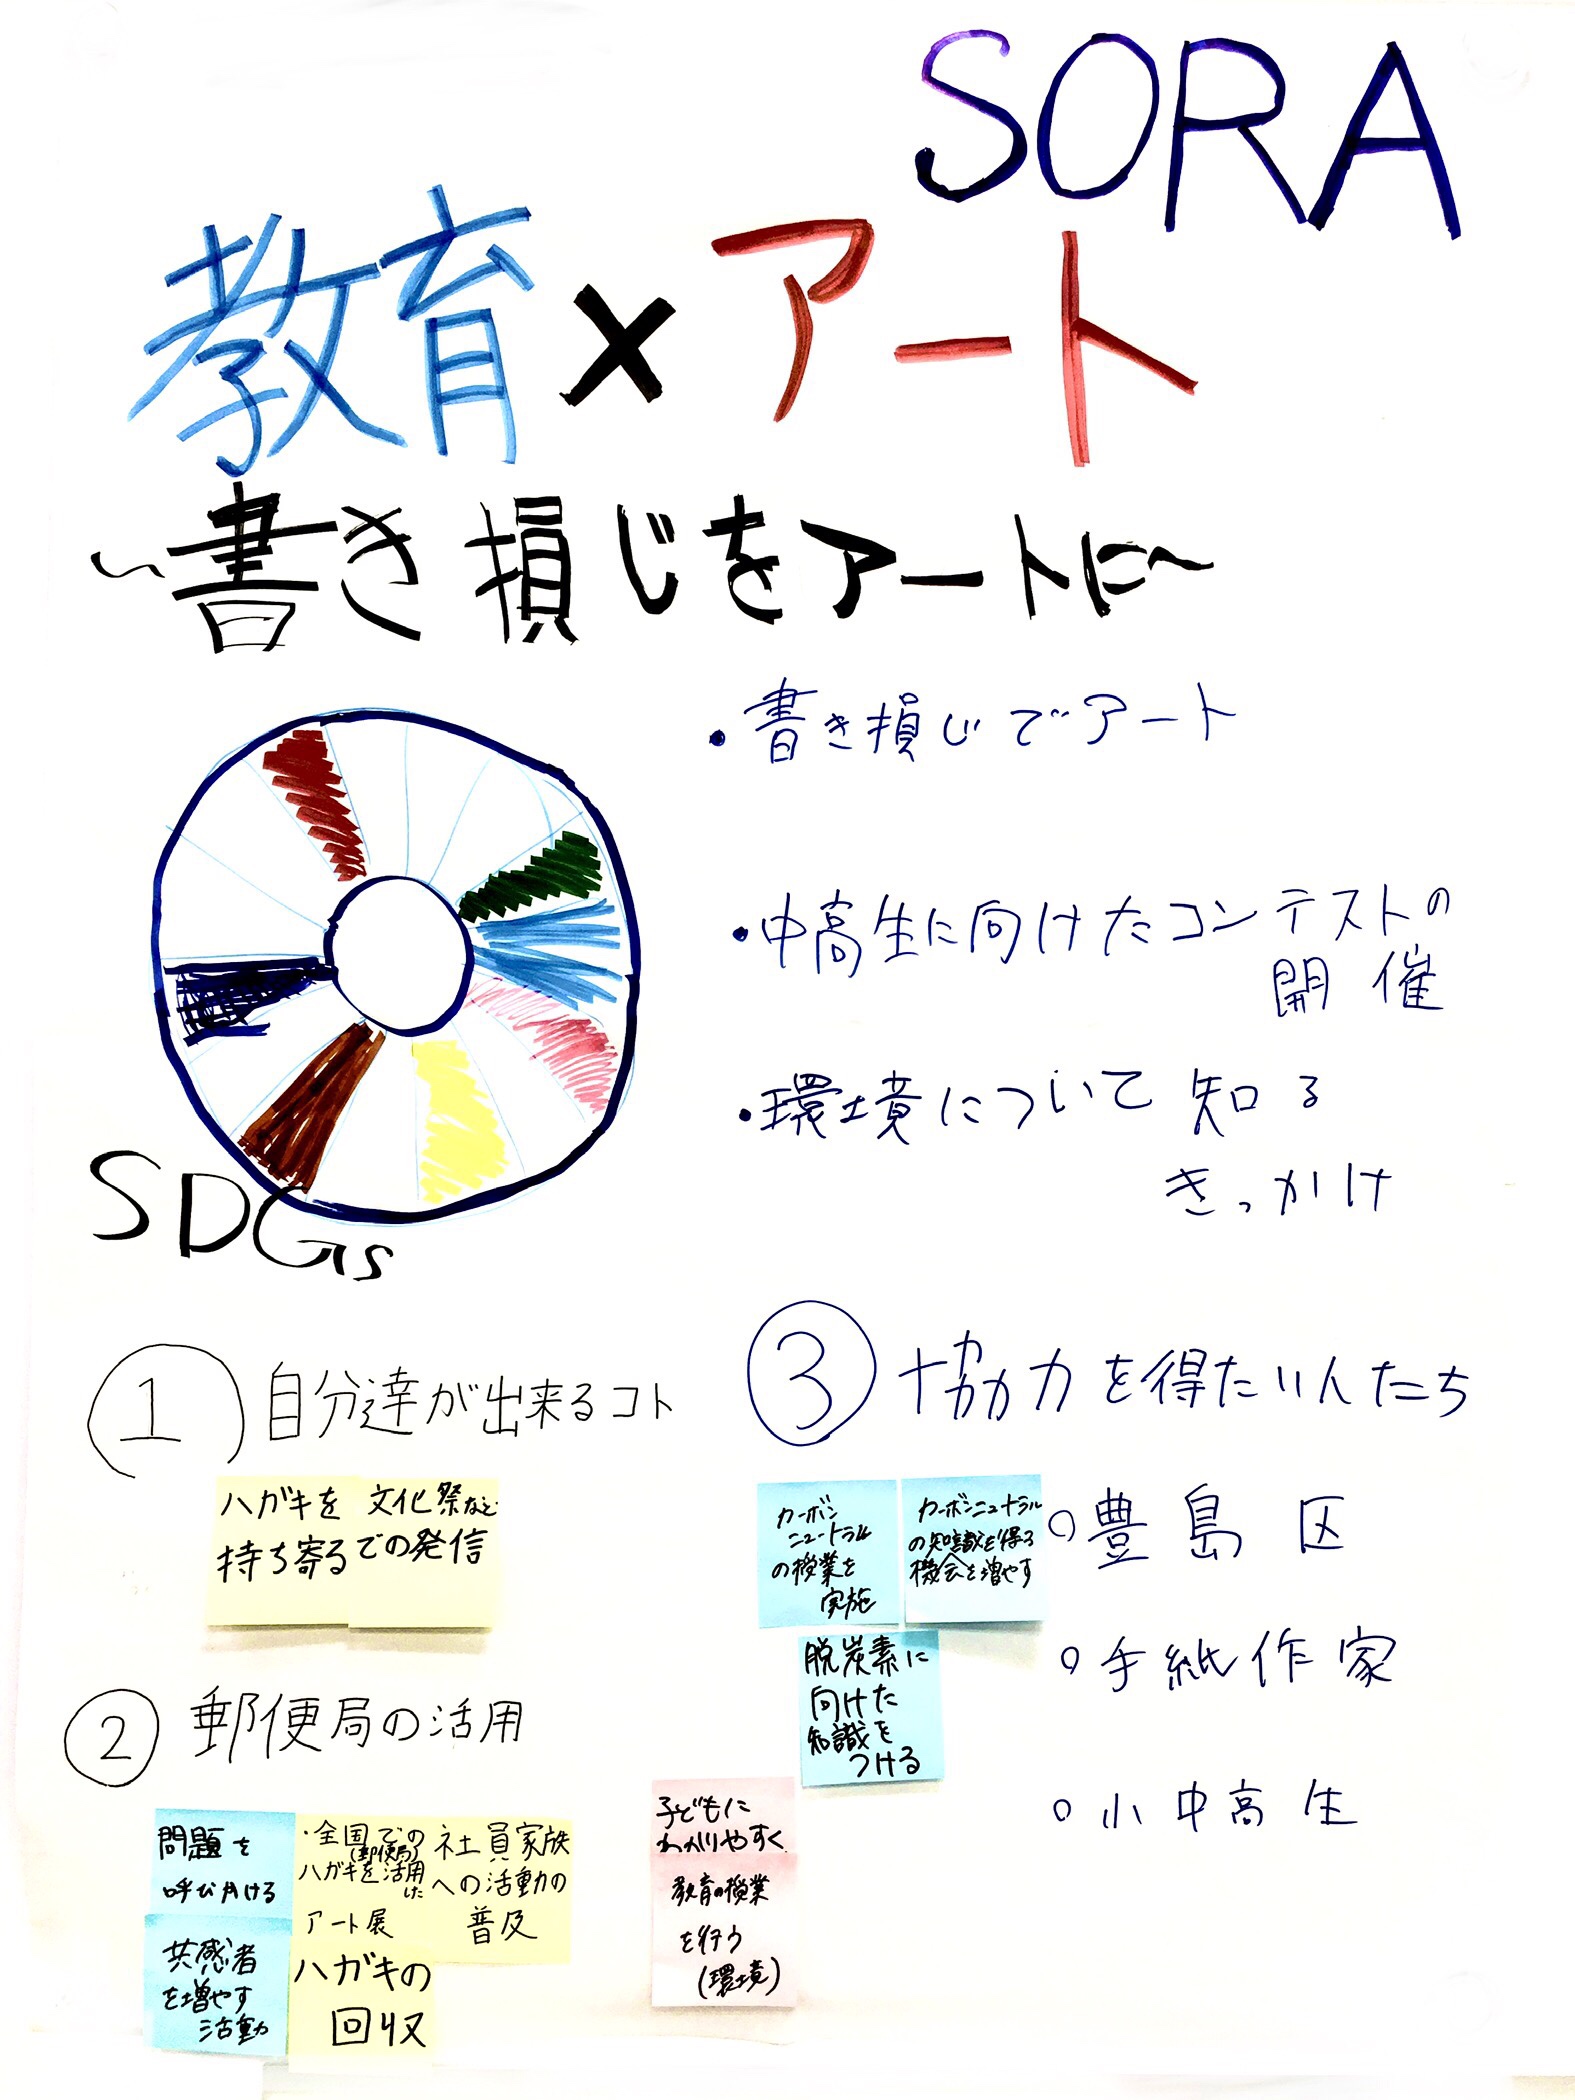 SORA
教育×アート
～書き損じをアートに～
・書き損じでアート
・中高生に向けたコンテストの
開催
・環境について知る
きっかけ
SDGs
① 自分達が出来るコト
ハガキを
持ち寄る
文化祭など
での発信
② 郵便局の活用
問題を
呼びかける
共感者
を増やす
活動
・全国での
(郵便局)
ハガキを活用
した
アート展
社員家族
への活動の
普及
ハガキの
回収
③ 協力を得たい人たち
カーボン
ニュートラル
の授業を
実施
カーボンニュートラル
の知識を得る
機会を増やす
脱炭素に
向けた
知識を
つける
子どもに
わかりやすく
教育の授業
を行う
(環境)
○豊島区
○手紙作家
○小中高生